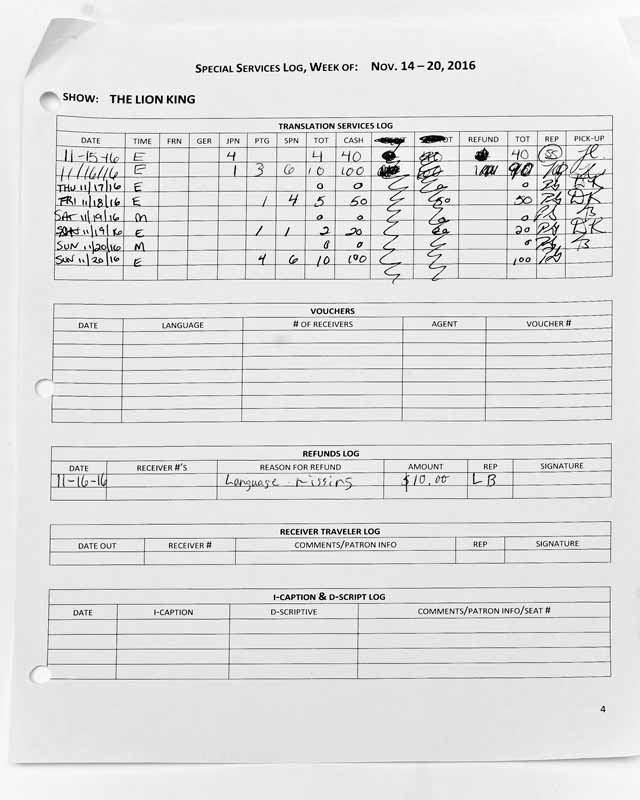 SPECIAL SERVICES LOG, WEEK OF: NOV. 14 – 20, 2016
SHOW: THE LION KING
TRANSLATION SERVICES LOG
DATE TIME FRN GER JPN PTG SPN TOT CASH REFUND TOT REP PICK-UP
11-15-16 E 4 4 40 40 SS
11/16/16 E 1 3 6 10 100 90
THU 11/17/16 E 0 0 0
FRI 11/18/16 E 1 4 5 50 50 50 DK
SAT 11/19/16 M 0 0 0
SAT 11/19/16 E 1 1 2 20 20 20 DK
SUN 11/20/16 M 0 0 0
SUN 11/20/16 E 4 6 10 100 100
VOUCHERS
DATE LANGUAGE # OF RECEIVERS AGENT VOUCHER #
REFUNDS LOG
DATE RECEIVER #'S REASON FOR REFUND AMOUNT REP SIGNATURE
11-16-16 Language missing $10.00 LB
RECEIVER TRAVELER LOG
DATE OUT RECEIVER # COMMENTS/PATRON INFO REP SIGNATURE
I-CAPTION & D-SCRIPT LOG
DATE I-CAPTION D-SCRIPTIVE COMMENTS/PATRON INFO/SEAT #
4